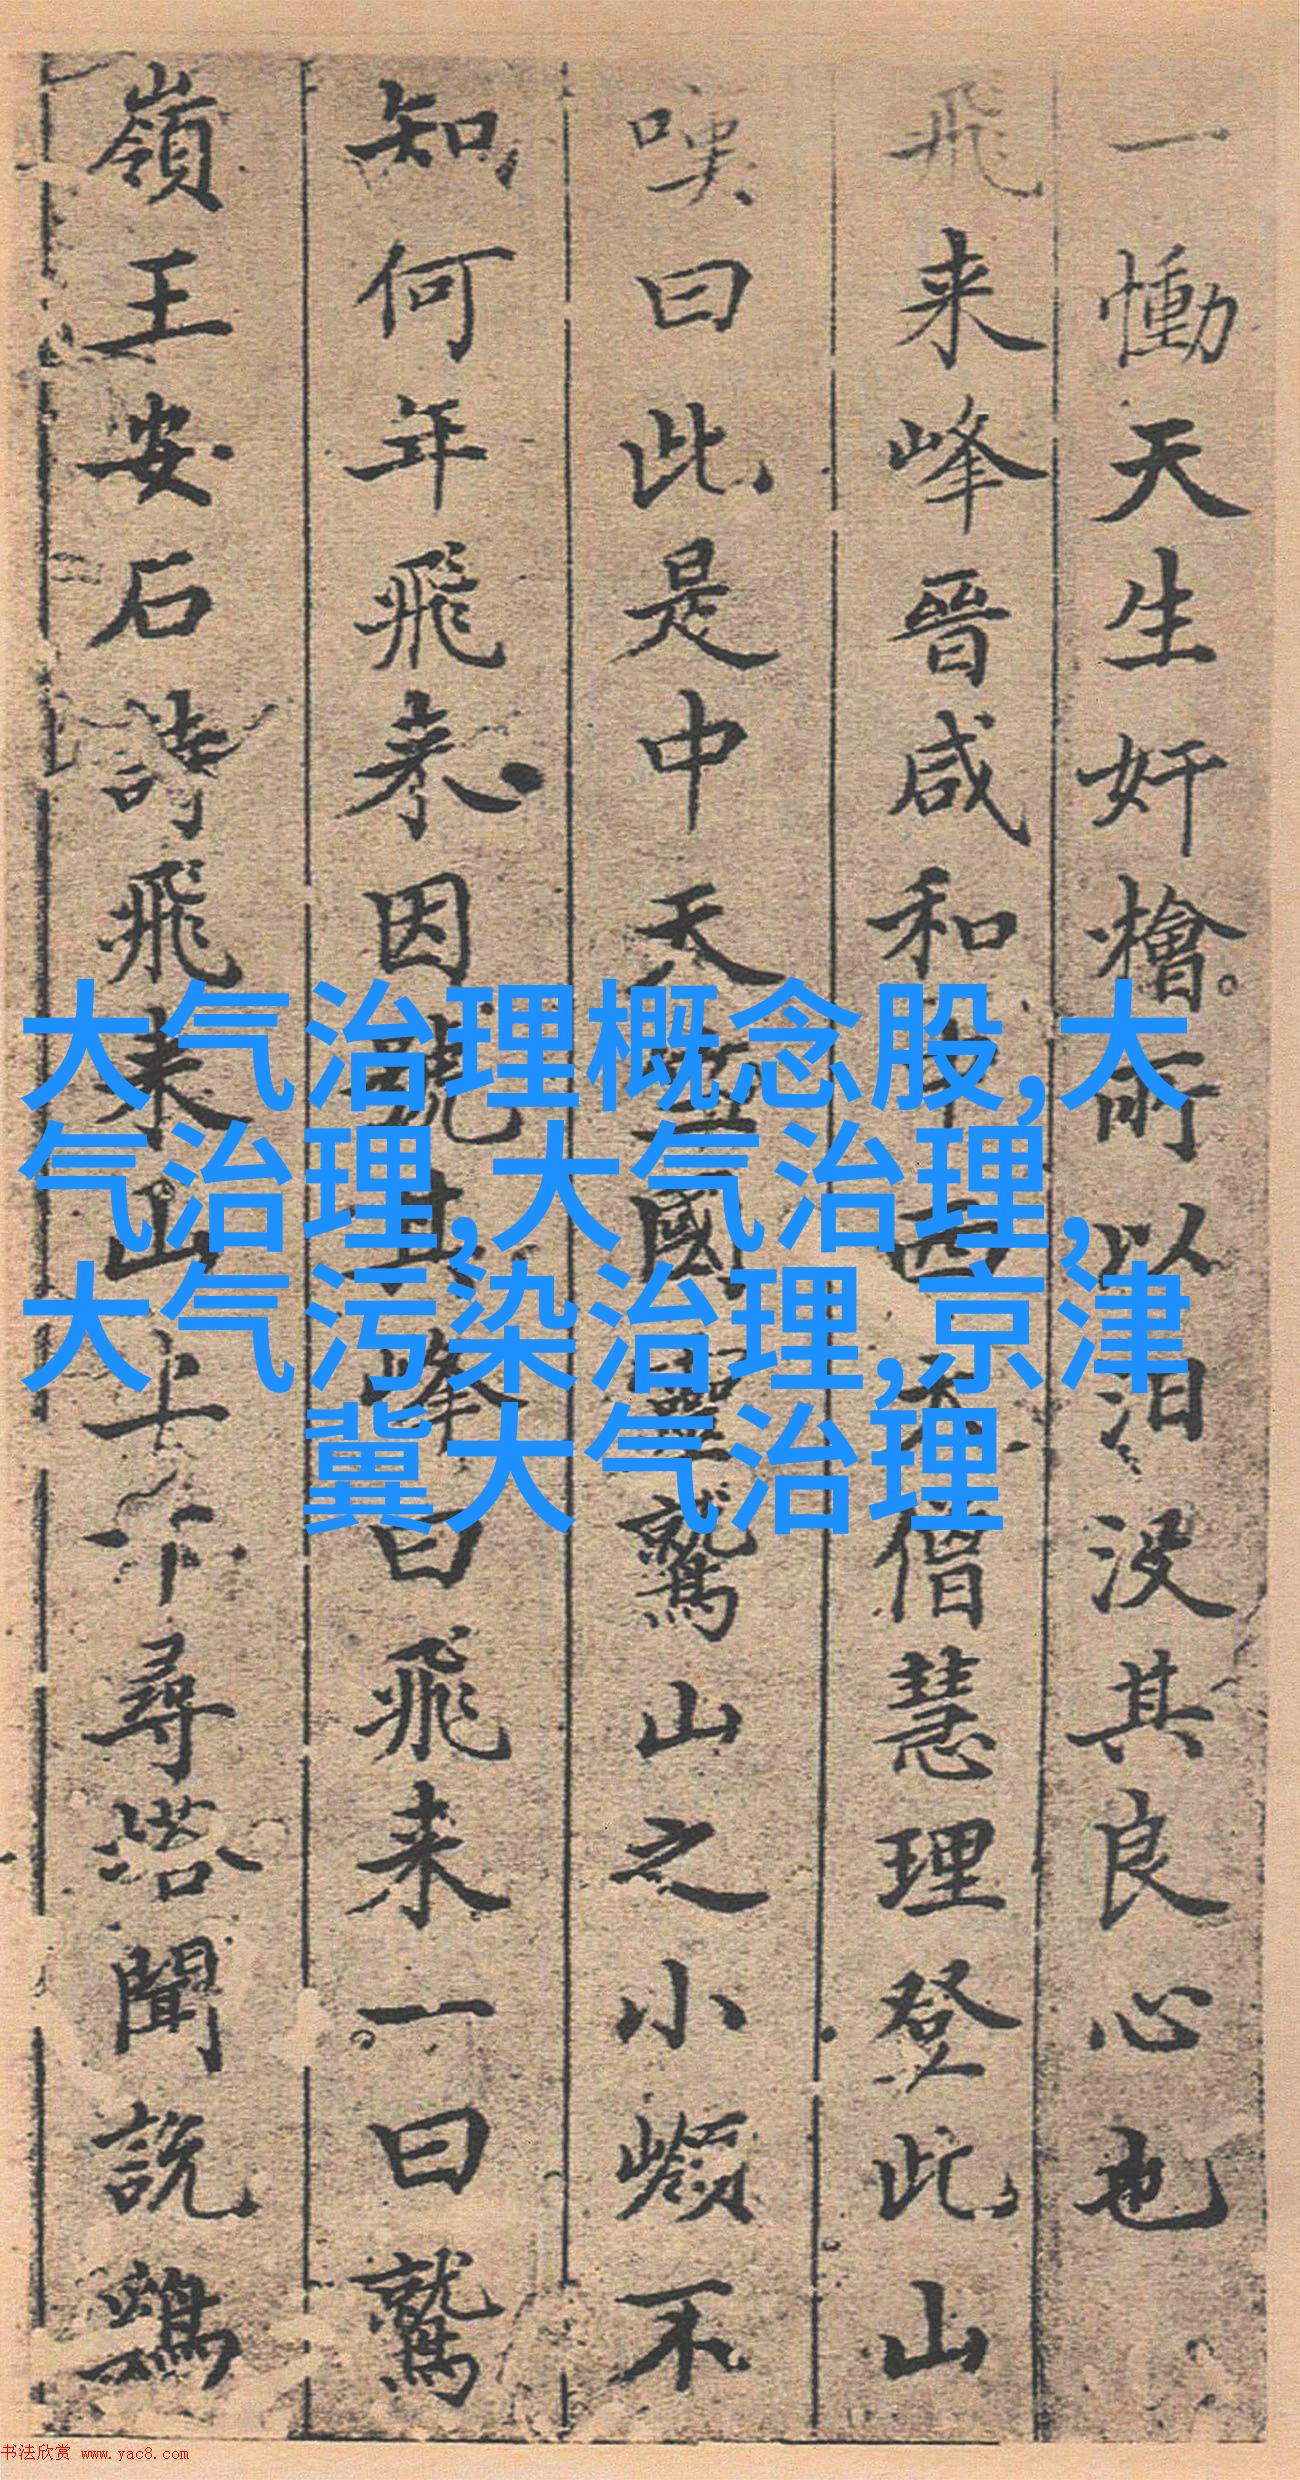 一慟天生奸檜所以汩没其良心也
飛来峰晉咸和西天僧慧理登此山
嘆曰此是中天竺國靈鷲山之小嶺不
知何年飛来因號其峰曰飛来一曰鷲
嶺王安石詩飛来山上千尋塔聞説鷄
大气治理概念股,大
气治理,大气治理,
大气污染治理,京津
冀大气治理
书法欣赏 www.yac8.com